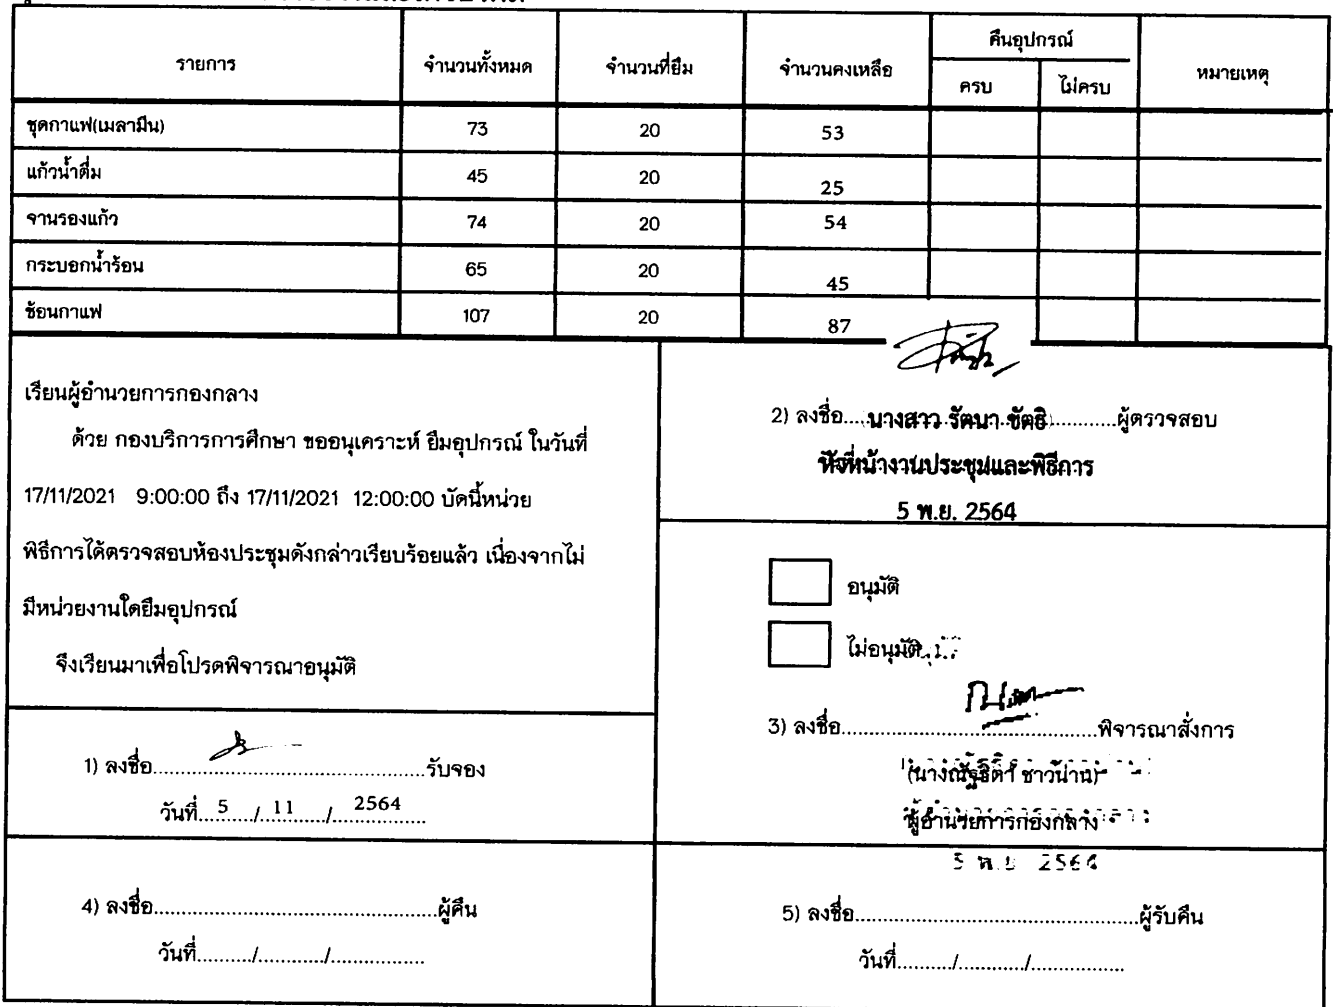 รายการ จำนวนทั้งหมด จำนวนที่ยืม จำนวนคงเหลือ คืนอุปกรณ์ หมายเหตุ
ครบ ไม่ครบ
ชุดกาแฟ(เมลามีน) 73 20 53
แก้วน้ำดื่ม 45 20 25
จานรองแก้ว 74 20 54
กระบอกน้ำร้อน 65 20 45
ช้อนกาแฟ 107 20 87
เรียนผู้อำนวยการกองกลาง
ด้วย กองบริการการศึกษา ขออนุเคราะห์ ยืมอุปกรณ์ ในวันที่
17/11/2021 9:00:00 ถึง 17/11/2021 12:00:00 บัดนี้หน่วย
พิธีการได้ตรวจสอบห้องประชุมดังกล่าวเรียบร้อยแล้ว เนื่องจากไม่
มีหน่วยงานใดยืมอุปกรณ์
จึงเรียนมาเพื่อโปรดพิจารณาอนุมัติ
2) ลงชื่อ....นางสาว รัตนา ขัตธิ............ผู้ตรวจสอบ
งานประชุมและพิธีการ
5 พ.ย. 2564
อนุมัติ
ไม่อนุมัติ
3) ลงชื่อ........................................พิจารณาสั่งการ
ผู้อำนวยการกองกลาง
5 พ.ย 2564
1) ลงชื่อ..........................................รับจอง
วันที่...5..../..11......./...2564........
4) ลงชื่อ............................................ผู้คืน
วันที่........./.........../.................
5) ลงชื่อ............................................ผู้รับคืน
วันที่........./.........../.................